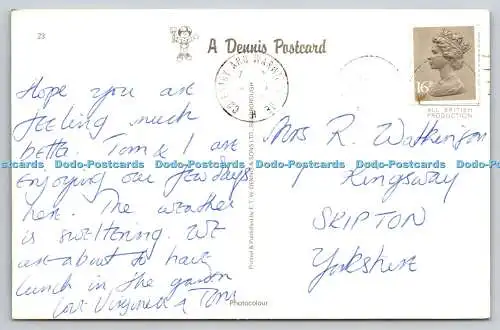 23
A Dennis Postcard
COVENTRY AND WARWICKS
16
ALL BRITISH
PRODUCTION
Hope you are
feeling much
better. Tom & I are
enjoying our few days
here. The weather
is sweltering. We
are about to have
lunch in the garden
love Virginia & Tom
Mrs R. Watkinson
1 Kingsway
SKIPTON
Yorkshire
Printed & Published by E.T.W. Dennis & Sons Ltd., Scarborough
Photocolour
Dodo-Postcards Dodo-Postcards Dodo-Postcards Dodo-Postcards Dodo-Postcards Dodo-Postcards